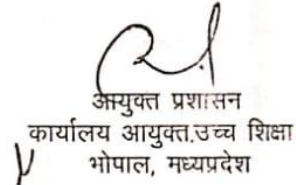 आयुक्त प्रशासन
कार्यालय आयुक्त.उच्च शिक्षा
भोपाल, मध्यप्रदेश